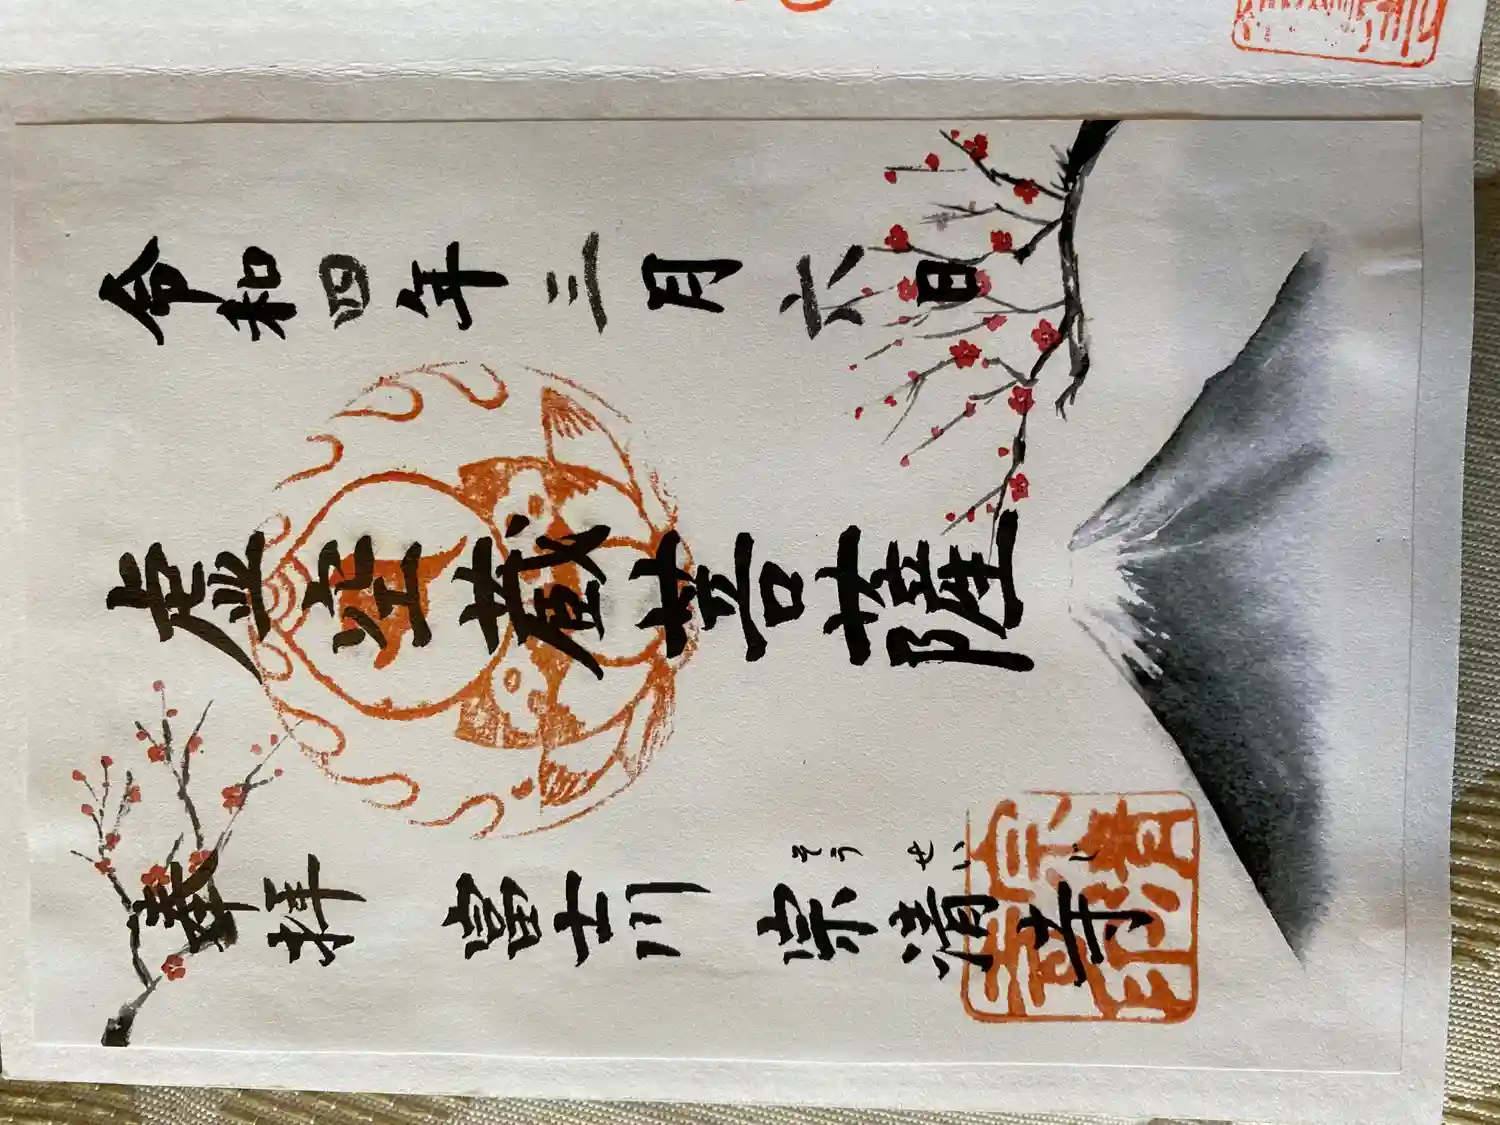 令和四年三月六日
虚空蔵菩薩
奉拝 富士川 宗清寺
そうせいじ